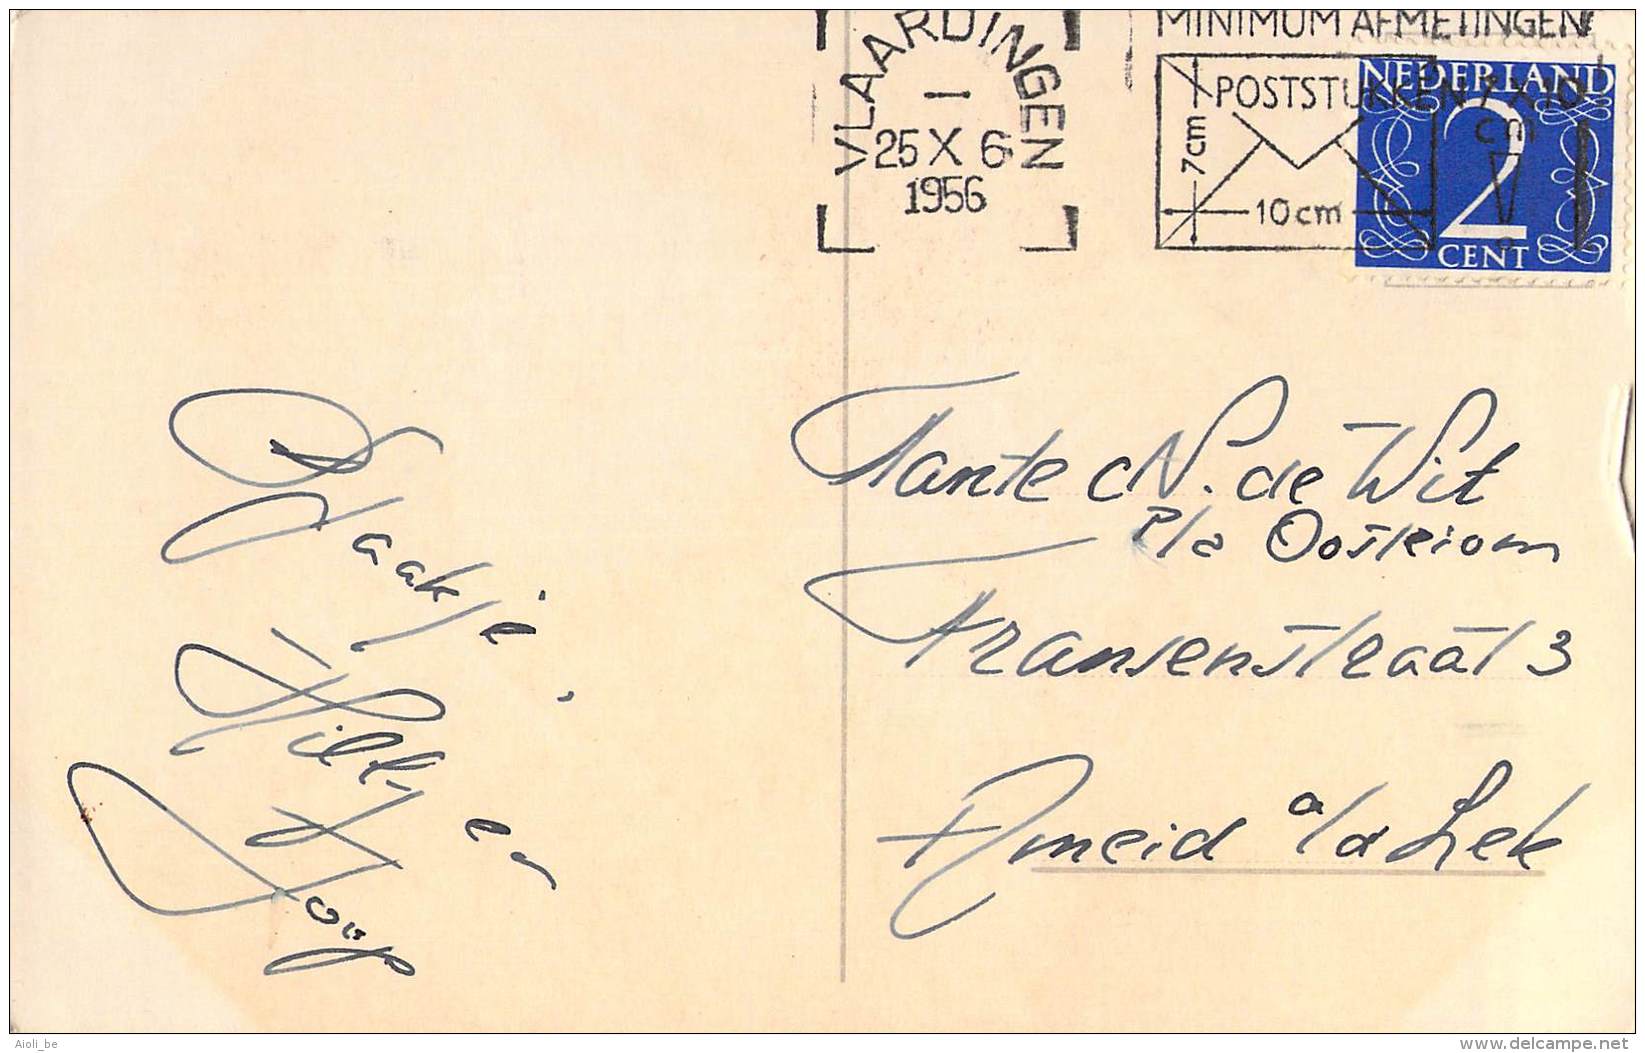 MINIMUM AFMETINGEN
POSTSTUKKEN 7 X 10
cm
7cm
10cm
VLAARDINGEN
25 X 6
1956
NEDERLAND
2
CENT
Tante N. de Wit
p/a Oosterom
Fransenstraat 3
Ameid a/d Lek
Hilly en
Joop
Aioli_be
www.delcampe.net